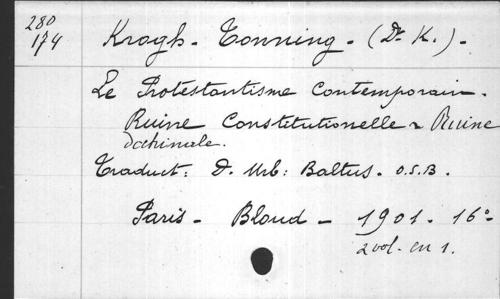 280
174
Krogh-Tonning - (Dr K.) -
Le Protestantisme Contemporain -
Ruine Constitutionelle & Ruine
doctrinale.
Traduct: D. Urb: Baltus. O.S.B.
Paris - Bloud - 1901 - 16°-
2 vol. en 1.